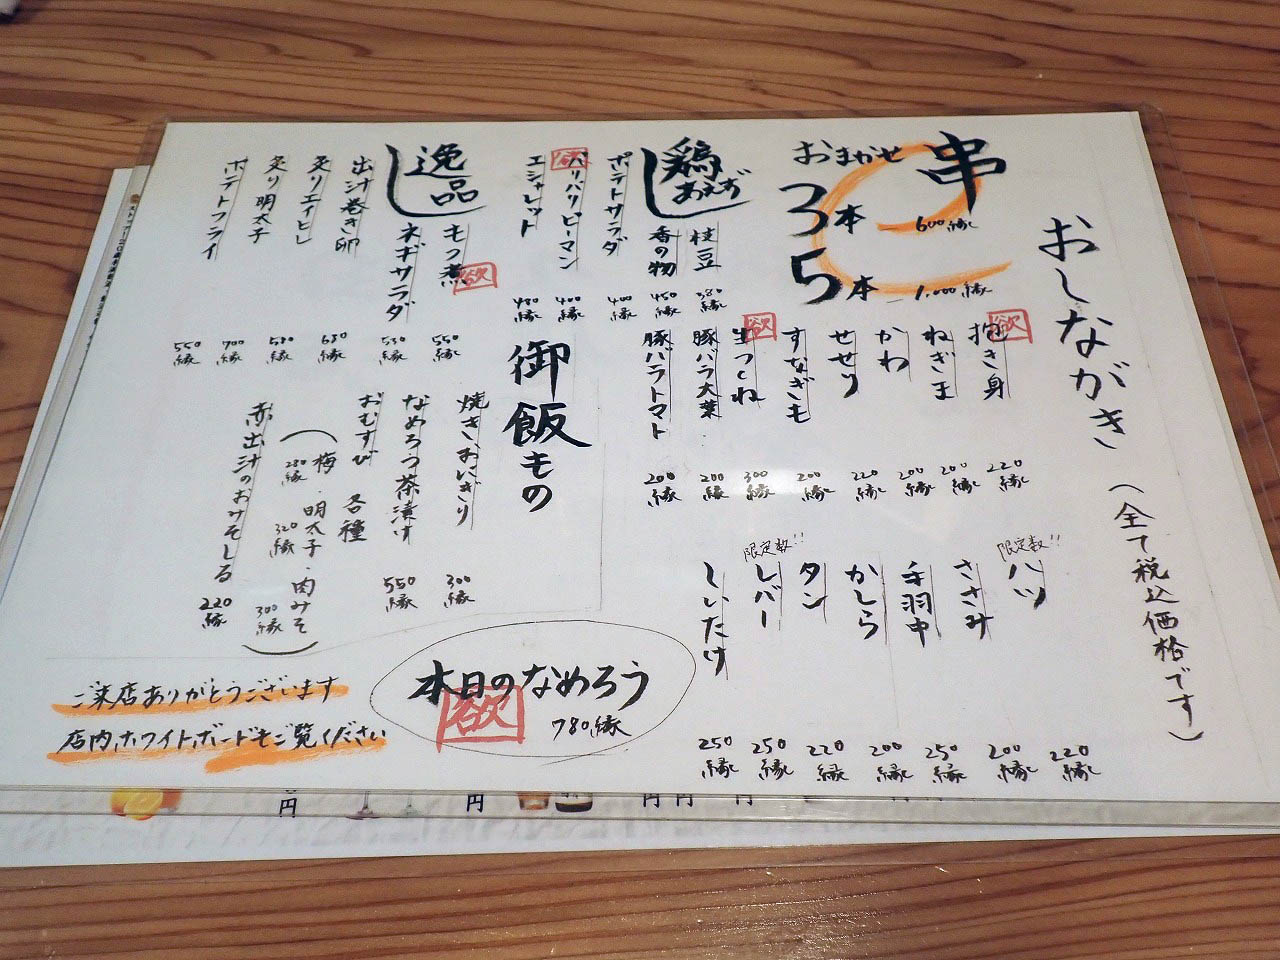 おしながき（全て税込価格です）
串
おまかせ
3本 600縁
5本 1,000縁
欲
抱き身 220縁
ねぎま 200縁
かわ 200縁
せせり 220縁
すなぎも 200縁
欲
生つくね 300縁
豚バラ大葉 200縁
豚バラトマト 200縁
限定数!!
ハツ 220縁
ささみ 200縁
手羽中 250縁
かしら 200縁
タン 220縁
限定数!!
レバー 250縁
しいたけ 250縁
鶏あえず
枝豆 380縁
香の物 450縁
ポテトサラダ 400縁
欲
パリパリピーマン 400縁
エシャレット 480縁
逸品
もつ煮 550縁
欲
ネギサラダ 530縁
出汁巻き卵 680縁
炙りエイヒレ 580縁
炙り明太子 700縁
ポテトフライ 550縁
御飯もの
焼きおにぎり 300縁
なめろう茶漬け 550縁
おむすび 各種
（梅・明太子・肉みそ）
280縁 320縁 300縁
赤出汁のおみそしる 220縁
本日のなめろう
欲
780縁
ご来店ありがとうございます
店内ホワイトボードもご覧ください
円
円
円
円
円